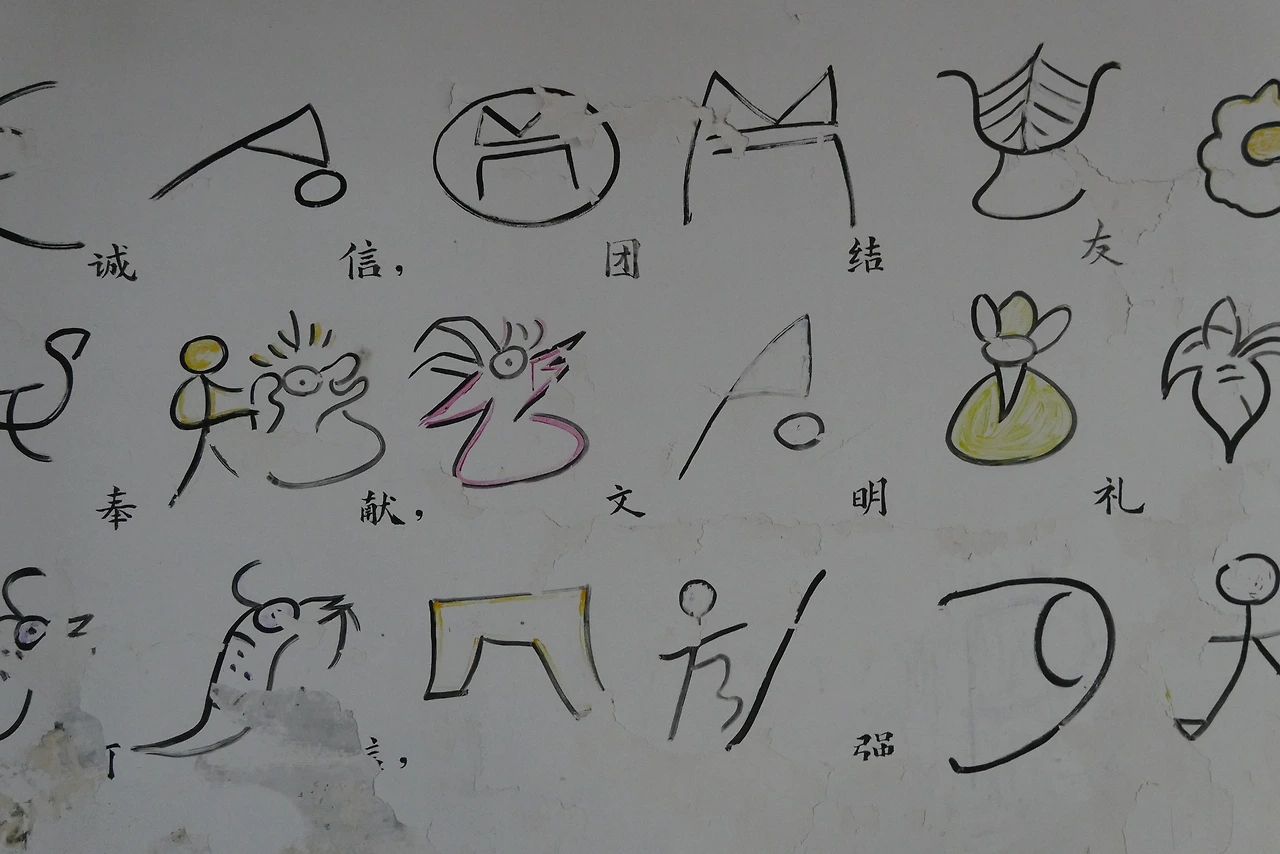 诚信，团结友
奉献，文明礼
，强